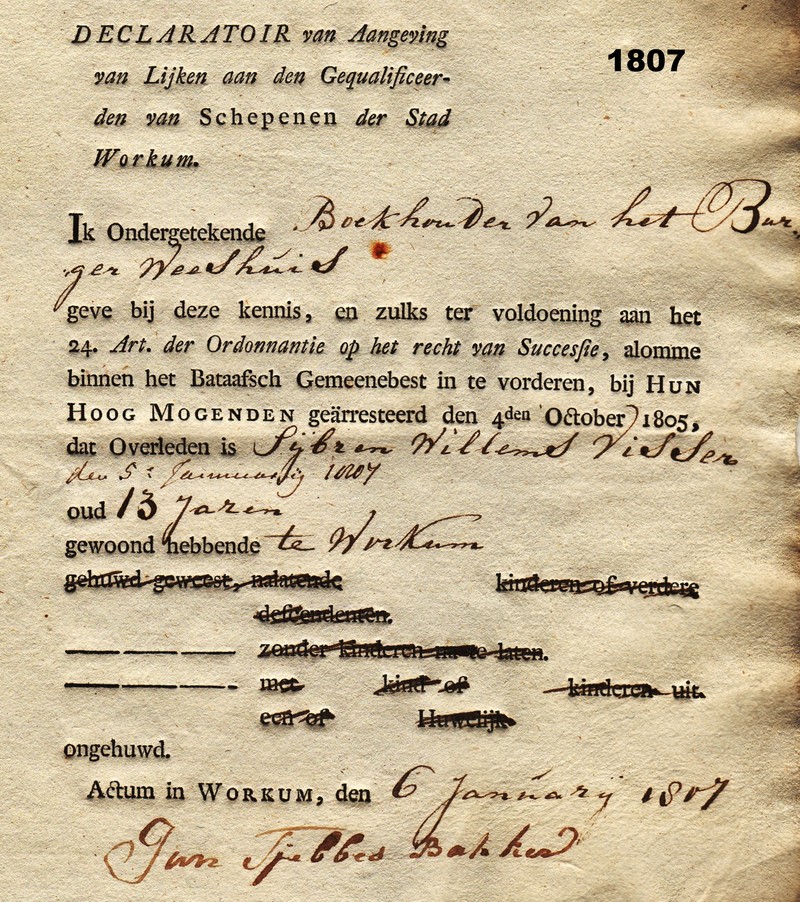 DECLARATOIR van Aangeving
van Lijken aan den Gequalificeer-
den van Schepenen der Stad
Workum.
1807
Ik Ondergetekende Boekhouder van het Bur-
ger Weeshuis
geve bij deze kennis, en zulks ter voldoening aan het
24. Art. der Ordonnantie op het recht van Succesſie, alomme
binnen het Bataafsch Gemeenebest in te vorderen, bij HUN
HOOG MOGENDEN geärresteerd den 4den October 1805,
dat Overleden is Sijbren Willems Visser
den 5e Januuarij 1807
oud 13 Jaren
gewoond hebbende te Workum
gehuwd geweest, nalatende kinderen of verdere
deſcendenten.
zonder kinderen na te laten.
met kind of kinderen uit
een of Huwelijk.
ongehuwd.
Actum in WORKUM, den 6 Januarij 1807
Jan Tjebbes Bakker